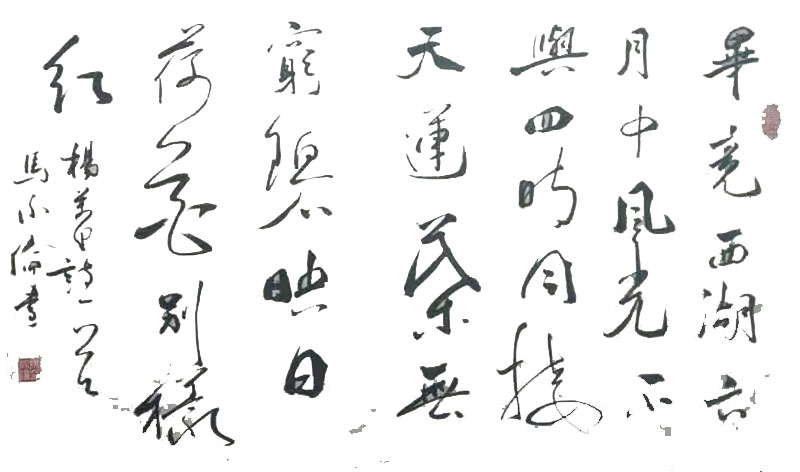 畢竟西湖六
月中風光不
與四時同接
天蓮葉無
窮碧映日
荷花別樣
紅
楊萬里詩一首
馬倫書